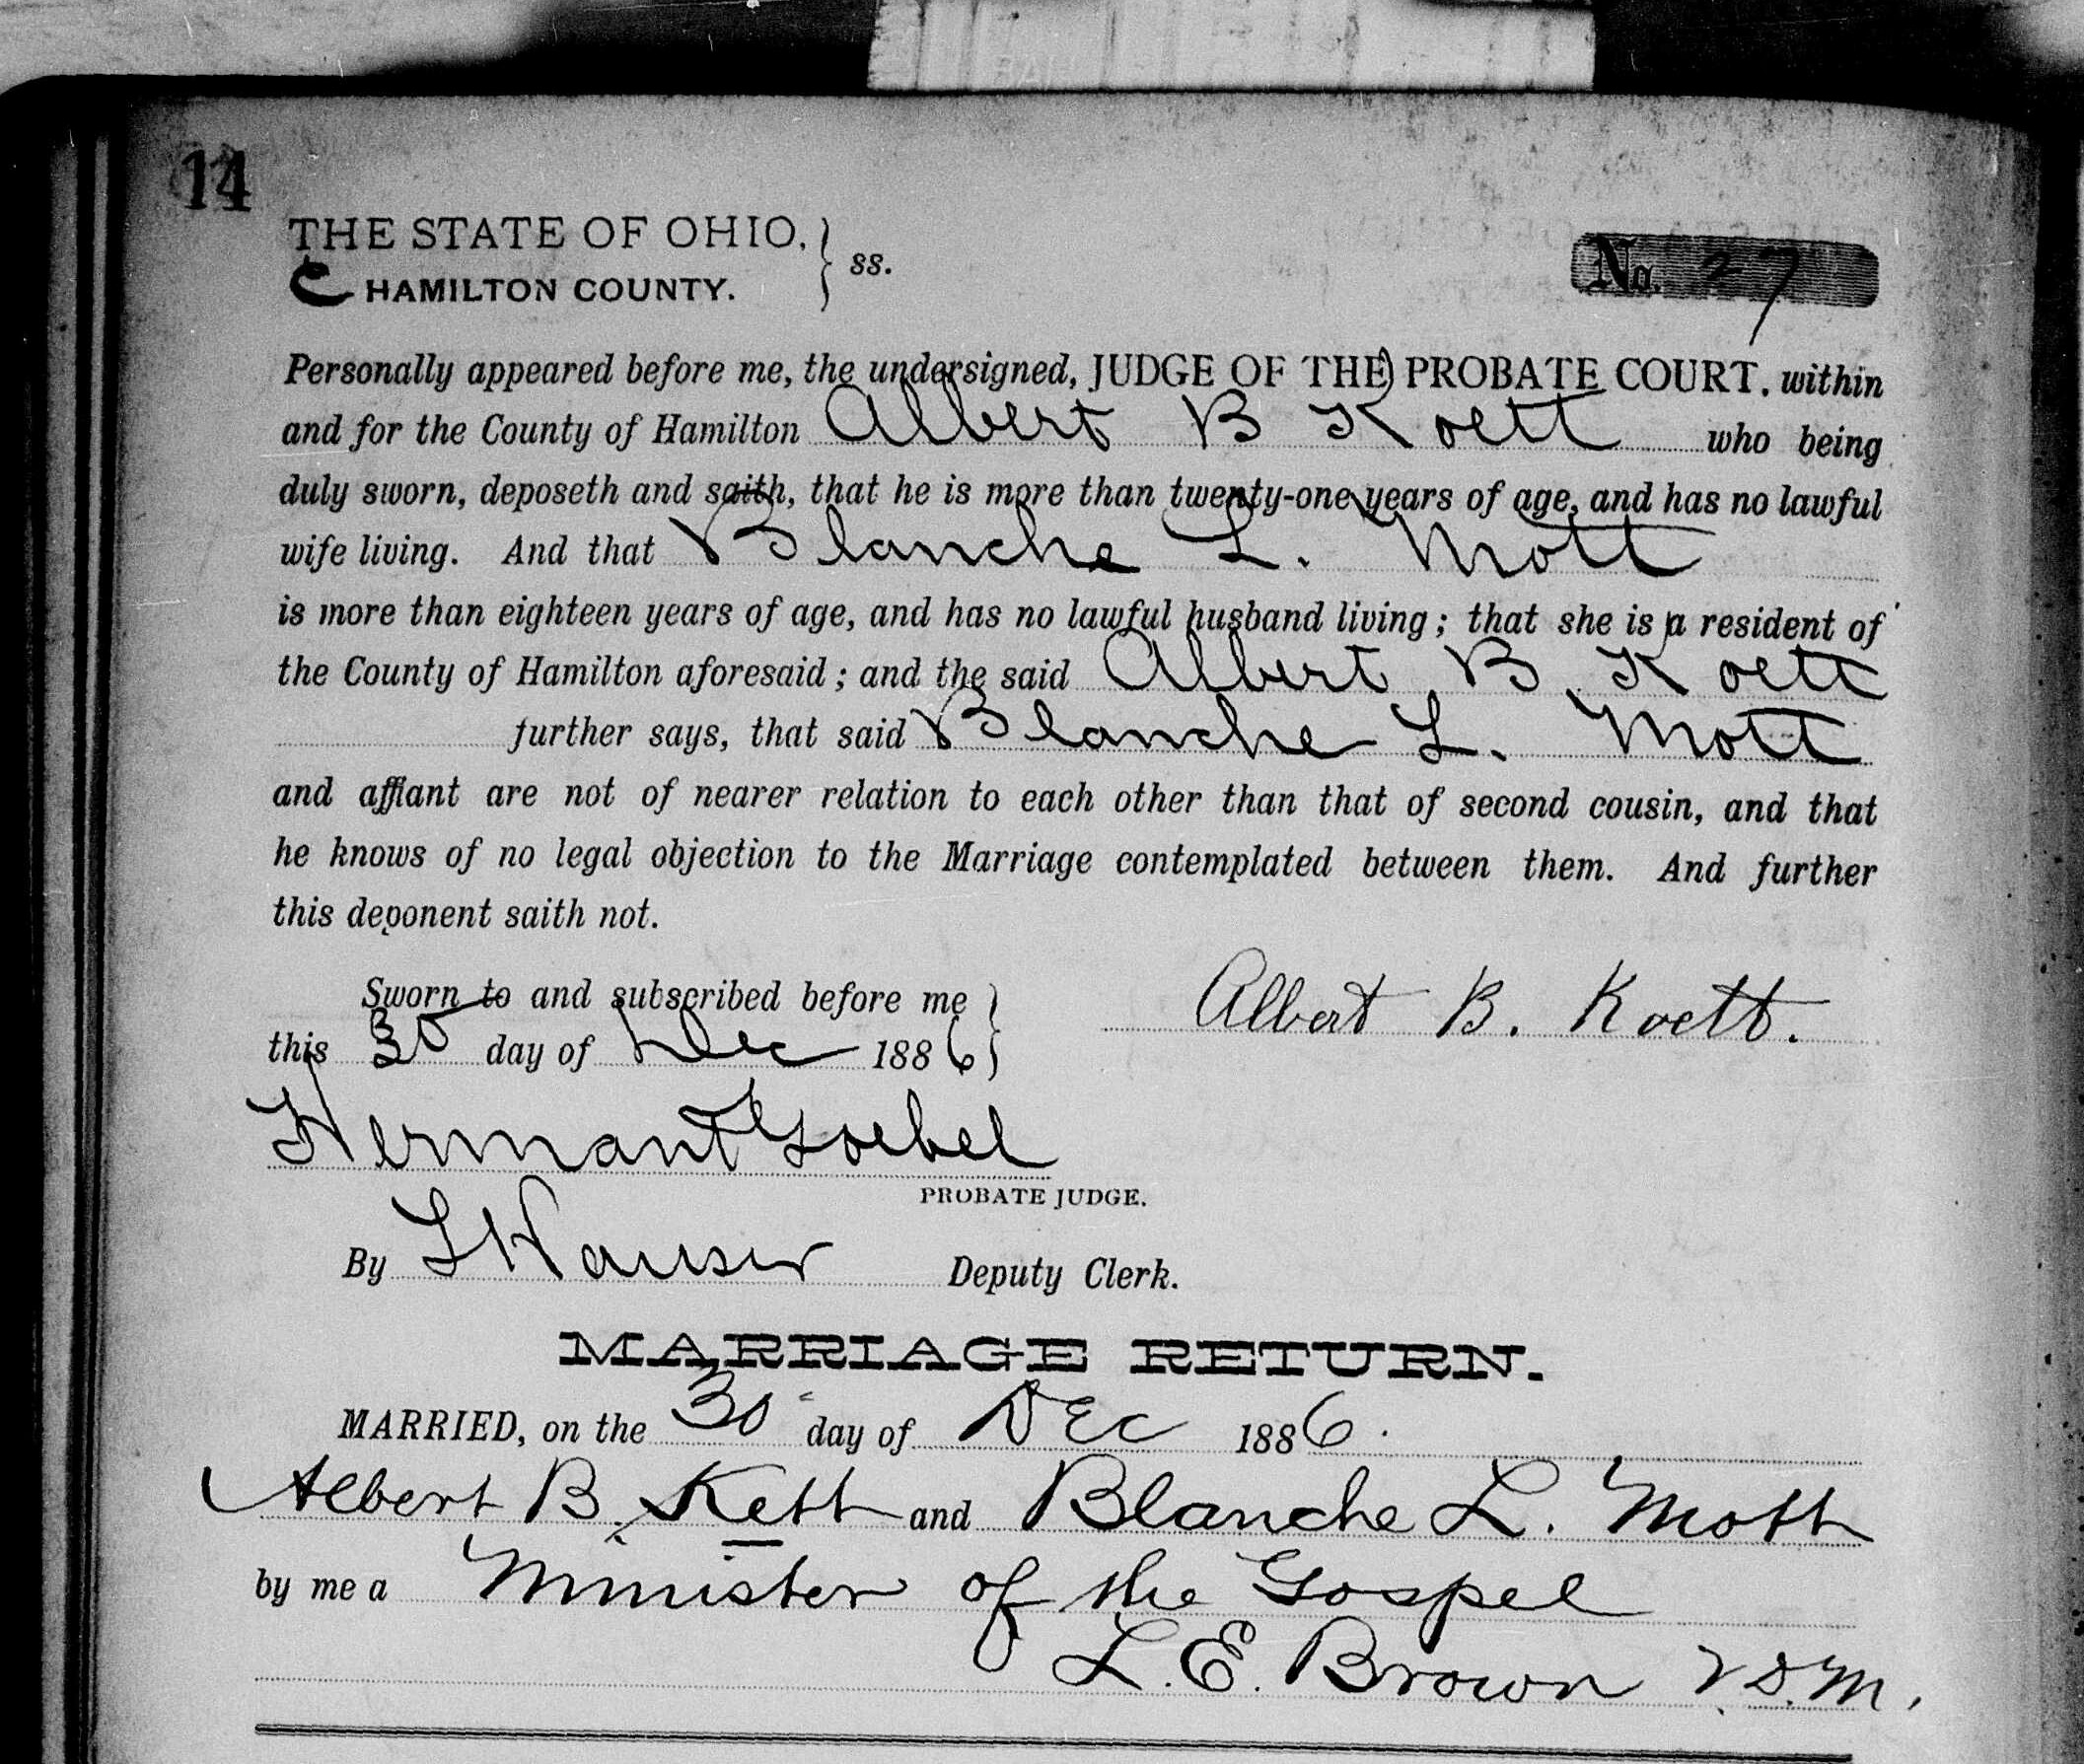 14
THE STATE OF OHIO, } ss.
C HAMILTON COUNTY.
No. 27
Personally appeared before me, the undersigned, JUDGE OF THE PROBATE COURT, within
and for the County of Hamilton Albert B Koett who being
duly sworn, deposeth and saith, that he is more than twenty-one years of age, and has no lawful
wife living. And that Blanche L. Mott
is more than eighteen years of age, and has no lawful husband living; that she is a resident of
the County of Hamilton aforesaid; and the said Albert B. Koett
further says, that said Blanche L. Mott
and affiant are not of nearer relation to each other than that of second cousin, and that
he knows of no legal objection to the Marriage contemplated between them. And further
this deponent saith not.
Sworn to and subscribed before me }
Albert B. Koett.
this 30 day of Dec 1886
Herman P Goebel
PROBATE JUDGE.
By L Hauser Deputy Clerk.
MARRIAGE RETURN.
MARRIED, on the 30 day of Dec 1886.
Albert B. Kett and Blanche L. Mott
by me a Minister of the Gospel
L. E. Brown V.D.M.